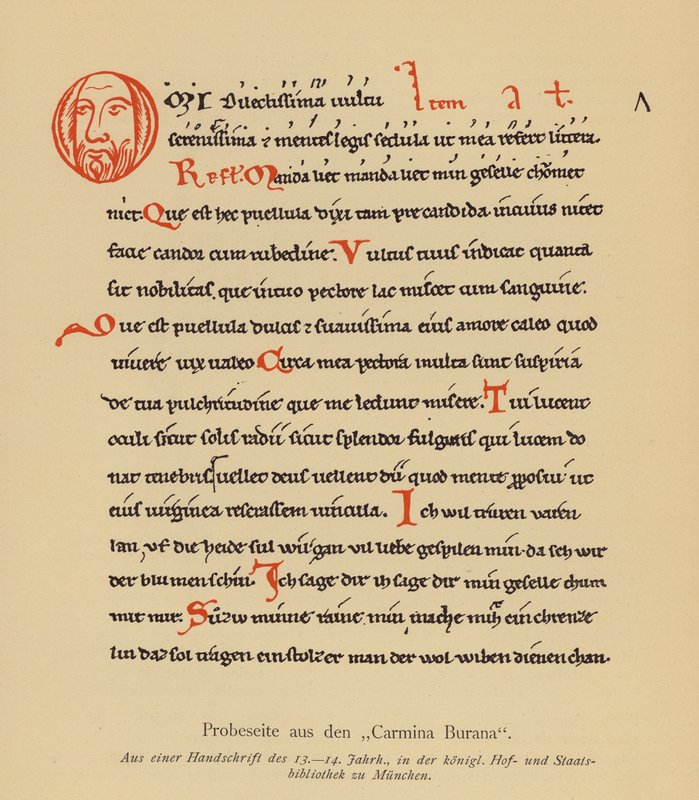 OMI Dilectissima uultu Item a t.
serenissima ⁊ mente legis sedula ut mea refert littera.
Refl. Manda liet manda liet min geselle chomet
niet. Que est hec puellula dixi tam precandida in cuius nitet
facie candor cum rubedine. Vultus tuus indicat quanta
sit nobilitas, que in tuo pectore lac miscet cum sanguine.
Que est puellula dulcis ⁊ suauissima eius amore caleo quod
uiuere uix ualeo Circa mea pectora multa sunt suspiria
de tua pulchritudine que me ledunt misere. Tui lucent
oculi sicut solis radii sicut splendor fulguris qui lucem do
nat tenebris uellet deus uellent dii quod mente pposui ut
eius uirginea reserassem uincula. Ich wil truren varen
lan, vf die heide sul wir gan vil liebe gespilen min da seh wir
der blumen schin. Ich sage dir ih sage dir min geselle chum
mit mir. Suziv minne raine min mache mih ein chrenze
lin daz sol tragen ein stolzer man der wol wiben dienen chan.
Probeseite aus den „Carmina Burana“.
Aus einer Handschrift des 13.—14. Jahrh., in der königl. Hof- und Staats-
bibliothek zu München.